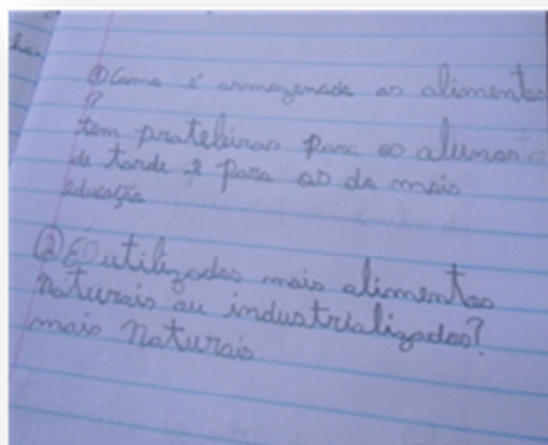 ① Como é armazenado os alimentos
?
tem prateleiras para os alunos
de tarde e para os da mais
educação
② É utilizados mais alimentos
naturais ou industrializados?
mais naturais